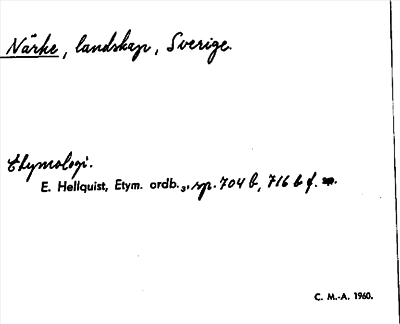 Närke, landskap, Sverige.
Etymologi.
E. Hellquist, Etym. ordb.₃, sp. 704 b, 716 b f.
C. M.-A. 1960.